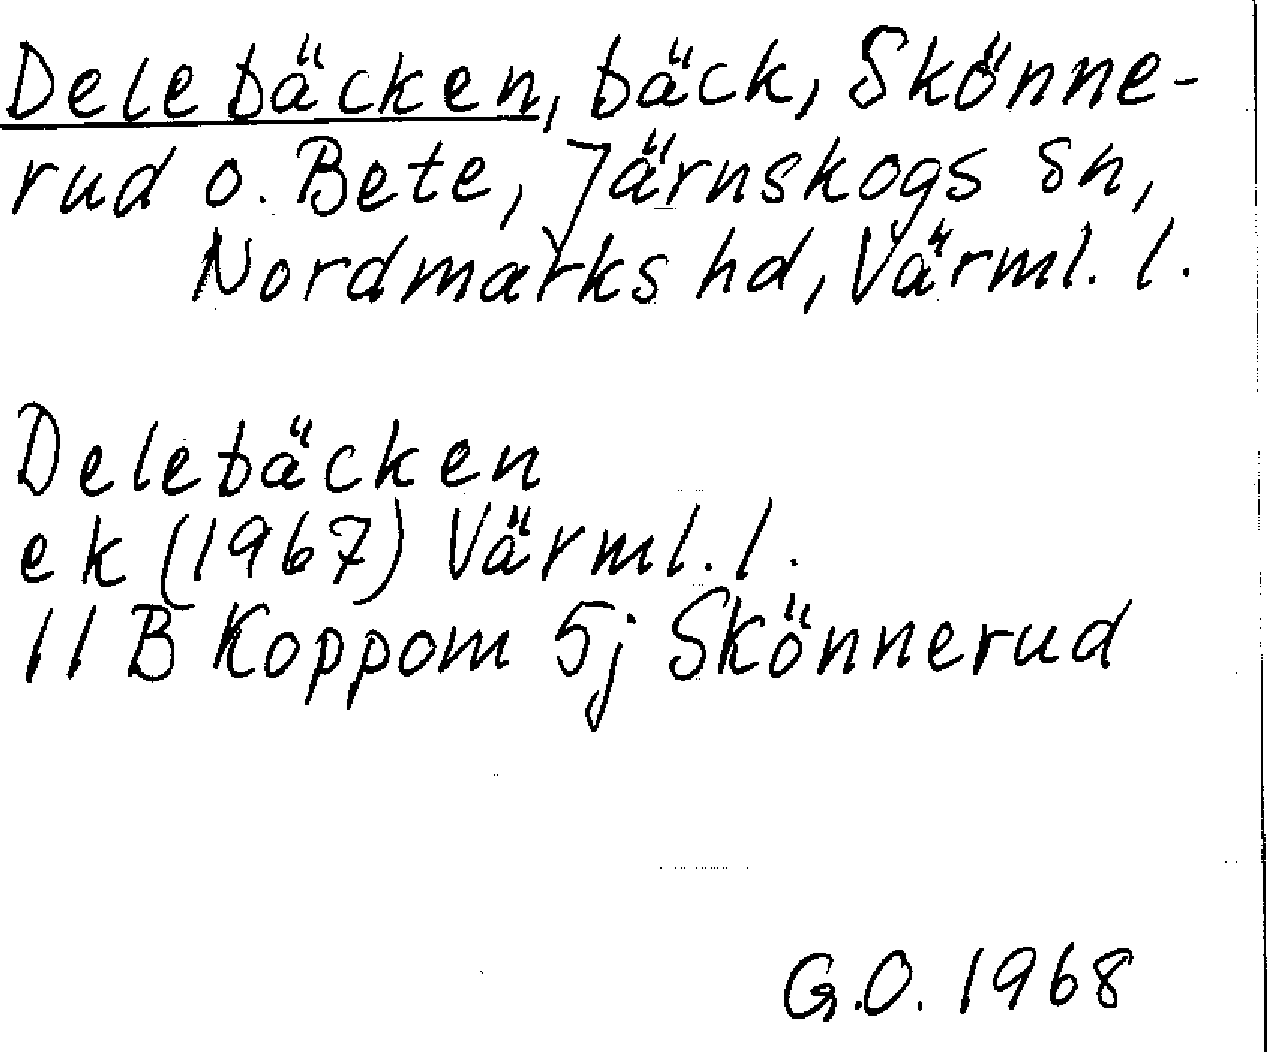 Delebäcken, bäck, Skönne-
rud o. Bete, Järnskogs sn,
Nordmarks hd, Värml. l.
Delebäcken
ek (1967) Värml. l.
11 B Koppom 5j Skönnerud
G.O. 1968